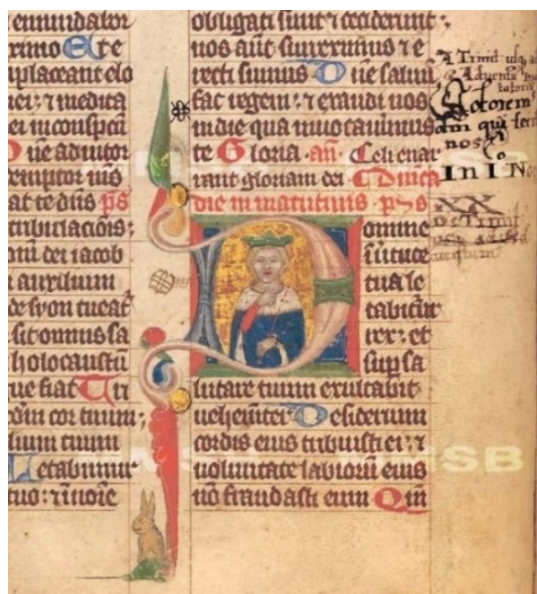 emundabor
ximo Et e
uplaceant elo
mei: ⁊ medita
ei in conspcũ
Dñe adiutor
emptor mús
at te dñs ps
tribulacõis:
dei iacob
auxilium
de syon tueat
sit omnis sa
holocaustũ
ue fiat Tri
dũm cor tuum:
lium tuum
Letabimur
tuo: ⁊ ĩ noĩe
obligati sunt ⁊ ceciderunt:
nos aũt surreximus ⁊ e
recti sumus Dñe saluũ
fac regem: ⁊ exaudi nos
in die qua inuocauimus
te Gloria añ Celi enar
rant gloriam dei Dñica
die in matutinis ps
Domine
ĩ uirtute
tua le
tabitur
rex: et
sup sa
lutare tuum exultabit
uehemẽter Desiderium
cordis eius tribuisti ei: ⁊
uolũtate labiorũ eius
nõ fraudasti eum Qm̃
A Trinit: usq ad
Aduentũ
qui fecit
nos
In I No
XX
SB